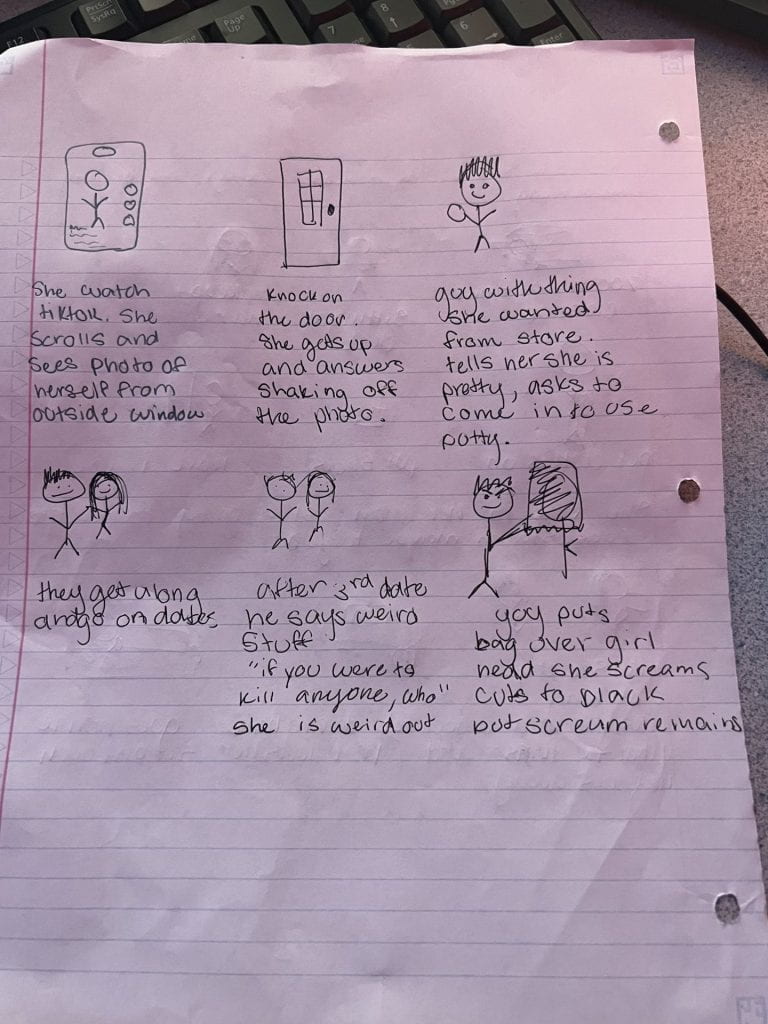 PrtScn
SysRq
F12
Page
Up
7
8
6
Enter
She watch
tiktok. She
scrolls and
sees photo of
herself from
outside window
Knock on
the door.
She gets up
and answers
shaking off
the photo.
guy with thing
she wanted
from store.
tells her she is
pretty, asks to
come in to use
potty.
they get along
and go on dates
after 3rd date
he says weird
stuff
"if you were to
kill anyone, who"
she is weird out
guy puts
bag over girl
head she screams
cuts to black
but scream remains